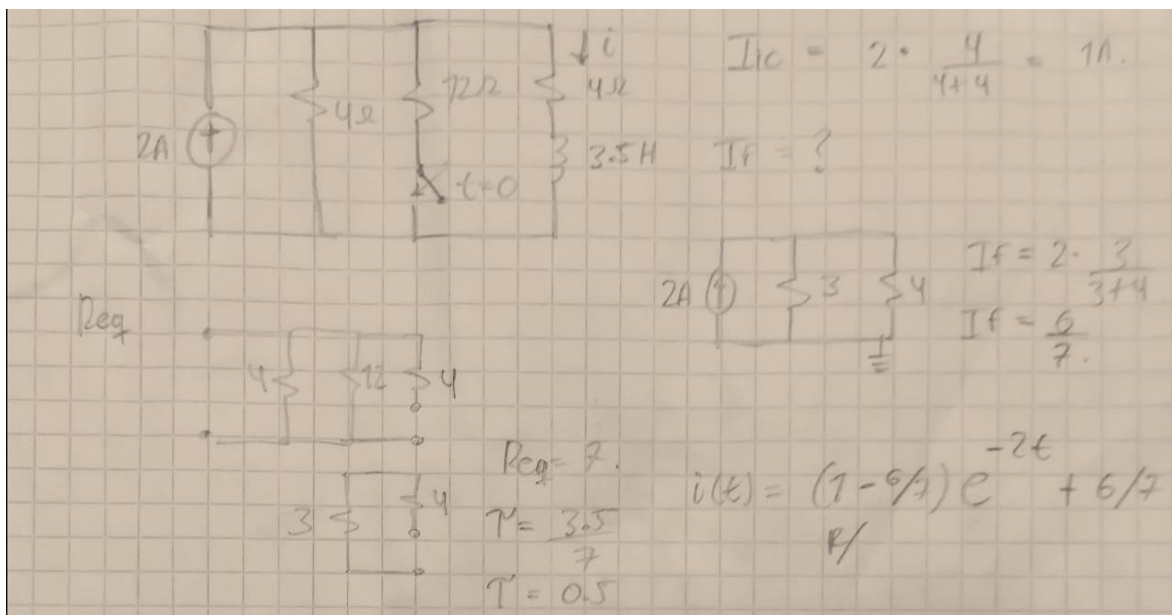 2A
4Ω
12Ω
t=0
i
4Ω
3.5H
I_IC = 2 · 4/(4+4) = 1A.
If = ?
2A
3
4
If = 2 · 3/(3+4)
If = 6/7.
Req
4
12
4
3
4
Req = 7.
τ = 3.5/7
τ = 0.5
i(t) = (1 - 6/7) e^-2t + 6/7
R/